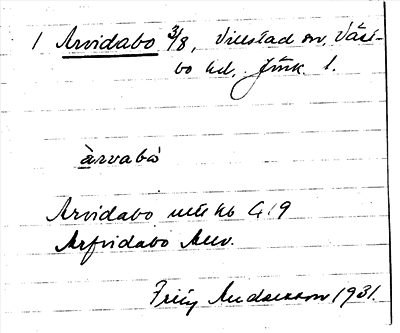 1 Arvidabo 3/8, Villstad sn, Väst-
bo hd, Jönk. l.
àrvabò
Arvidabo utt kb G 19
Arfvidabo
Fritz Andersson 1931.